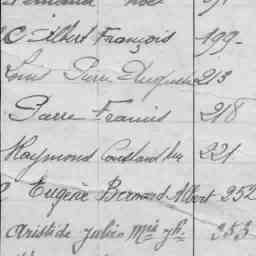 C Albert François 199-
Louis Pierre Auguste 213
Pierre Francis 218
Raymond Constand 221
Eugène Bernard Albert 252
Aristide Jules Mie Jh. 253